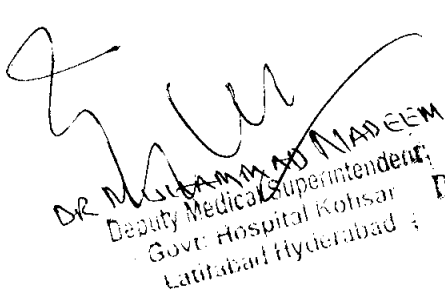 DR MUHAMMAD NADEEM
Deputy Medical Superintendent
Govt: Hospital Kohsar
Latifabad Hyderabad